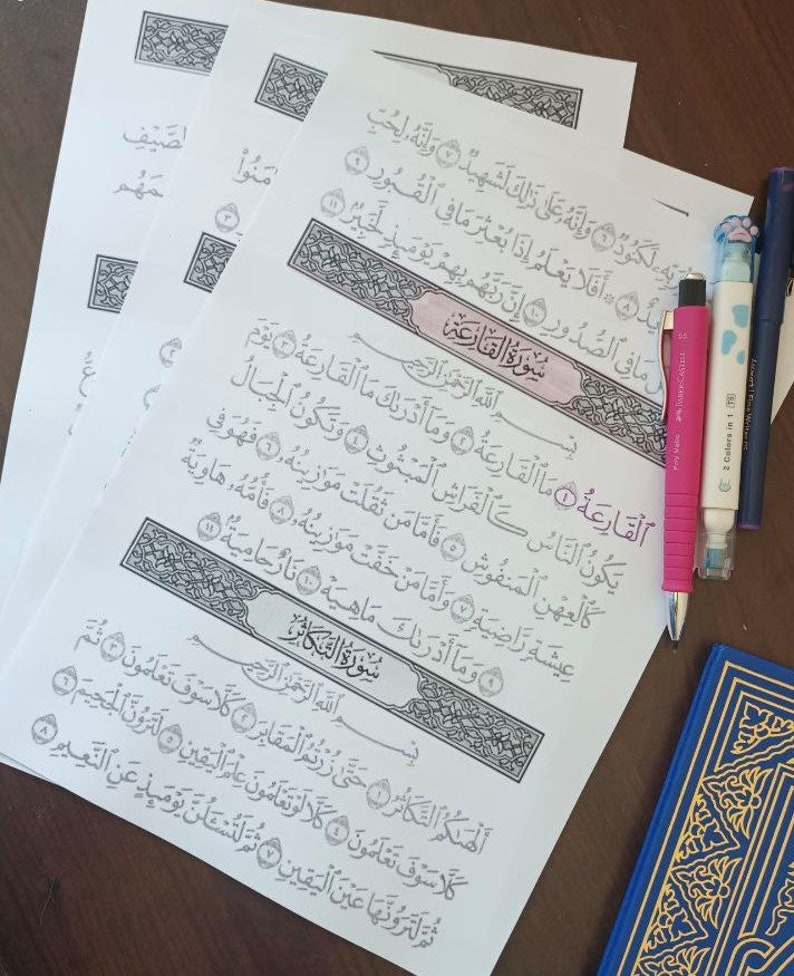 لَكَنُودٌ ٦ وَإِنَّهُۥ عَلَىٰ ذَٰلِكَ لَشَهِيدٌ ٧ وَإِنَّهُۥ لِحُبِّ
٨ ۞ أَفَلَا يَعْلَمُ إِذَا بُعْثِرَ مَا فِى ٱلْقُبُورِ ٩
مَا فِى ٱلصُّدُورِ ١٠ إِنَّ رَبَّهُم بِهِمْ يَوْمَئِذٍ لَّخَبِيرٌۢ ١١
سُورَةُ القَارِعَةِ
بِسْمِ ٱللَّهِ ٱلرَّحْمَٰنِ ٱلرَّحِيمِ
ٱلْقَارِعَةُ ١ مَا ٱلْقَارِعَةُ ٢ وَمَآ أَدْرَىٰكَ مَا ٱلْقَارِعَةُ ٣ يَوْمَ
يَكُونُ ٱلنَّاسُ كَٱلْفَرَاشِ ٱلْمَبْثُوثِ ٤ وَتَكُونُ ٱلْجِبَالُ
كَٱلْعِهْنِ ٱلْمَنفُوشِ ٥ فَأَمَّا مَن ثَقُلَتْ مَوَٰزِينُهُۥ ٦ فَهُوَ فِى
عِيشَةٍ رَّاضِيَةٍ ٧ وَأَمَّا مَنْ خَفَّتْ مَوَٰزِينُهُۥ ٨ فَأُمُّهُۥ هَاوِيَةٌ
٩ وَمَآ أَدْرَىٰكَ مَا هِيَهْ ١٠ نَارٌ حَامِيَةٌۢ ١١
سُورَةُ التَّكَاثُرِ
بِسْمِ ٱللَّهِ ٱلرَّحْمَٰنِ ٱلرَّحِيمِ
أَلْهَىٰكُمُ ٱلتَّكَاثُرُ ١ حَتَّىٰ زُرْتُمُ ٱلْمَقَابِرَ ٢ كَلَّا سَوْفَ تَعْلَمُونَ ٣ ثُمَّ
كَلَّا سَوْفَ تَعْلَمُونَ ٤ كَلَّا لَوْ تَعْلَمُونَ عِلْمَ ٱلْيَقِينِ ٥ لَتَرَوُنَّ ٱلْجَحِيمَ ٦
ثُمَّ لَتَرَوُنَّهَا عَيْنَ ٱلْيَقِينِ ٧ ثُمَّ لَتُسْـَٔلُنَّ يَوْمَئِذٍ عَنِ ٱلنَّعِيمِ ٨
FABER-CASTELL
2 Colors in 1